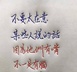 不要太在意
某些人说的话
因为他们有嘴
不一定有脑